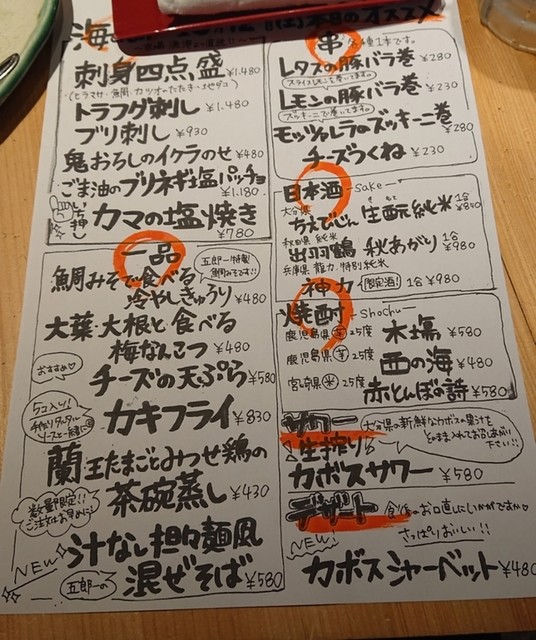 海
本日のオススメ
刺身四点盛 ¥1.480
トラフグ刺し ¥1.480
ブリ刺し ¥930
鬼おろしのイクラのせ ¥480
ごま油のブリネギ塩パッチョ ¥1.180
カマの塩焼き ¥780
一品
鯛みそで食べる
冷やしきゅうり ¥480
五郎一特製
鯛みそです!!
大葉・大根と食べる
梅なんこつ ¥480
おすすめ♡
チーズの天ぷら ¥580
5コ入り!
手作りタルタル
ソースと一緒に
カキフライ ¥830
蘭王たまごとみつせ鶏の
茶碗蒸し ¥430
数量限定!!
ご注文はお早めに
汁なし担々麺風
NEW!
五郎一の
混ぜそば ¥580
串 各種1本です。
レタスの豚バラ巻 ¥280
スライスレモンを巻いてます。
レモンの豚バラ巻 ¥230
ズッキーニで巻いてます。
モッツァレラのズッキーニ巻 ¥280
チーズつくね ¥230
日本酒 -sake-
大分県
ちえびじん 生酛純米 1合 ¥850
秋田県 純米
出羽鶴 秋あがり 1合 ¥980
兵庫県 龍力 特別純米
神力 限定酒! 1合 ¥980
焼酎 -shochu-
鹿児島県 芋 25度 木塲 ¥580
鹿児島県 芋 25度 西の海 ¥480
宮崎県 米 25度 赤とんぼの詩 ¥580
サワー
大分県の新鮮なカボスの果汁を
そのまま入れてお召しあがり
下さい!!
生搾り
カボスサワー ¥580
デザート 食後のお口直しにいかがですか♡
さっぱりおいしい!!
NEW!
カボスシャーベット ¥480